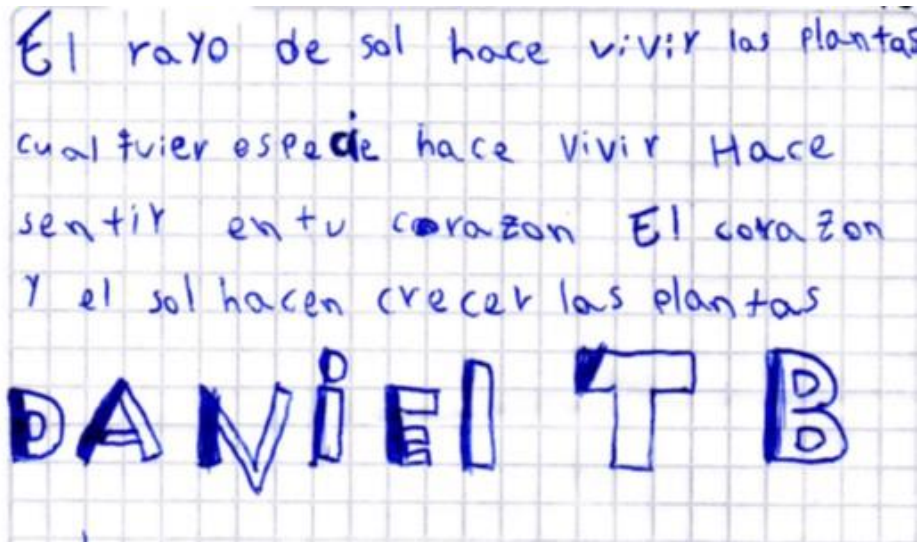 El rayo de sol hace vivir las plantas
cualquier especie hace vivir Hace
sentir en tu corazon El corazon
Y el sol hacen crecer las plantas
DANiEl T B